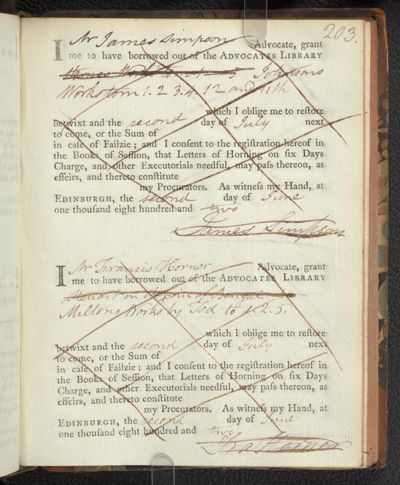 203.
I Mr James Simpson Advocate, grant
me to have borrowed out of the ADVOCATES LIBRARY
Johnsons
Works tom 1. 2 3. 4. 12 and 11th
which I oblige me to reſtore
betwixt and the second day of July next
to come, or the Sum of
in caſe of Failzie; and I conſent to the regiſtration hereof in
the Books of Seſſion, that Letters of Horning on ſix Days
Charge, and other Executorials needful, may paſs thereon, as
effeirs, and thereto conſtitute
my Procurators. As witneſs my Hand, at
EDINBURGH, the second day of June
one thouſand eight hundred and two
James Simpson
I Mr Francis Hornor Advocate, grant
me to have borrowed out of the ADVOCATES LIBRARY
Stuart on Coin of Bengal
Miltons Works by Tod to 1. 2. 3.
which I oblige me to reſtore
betwixt and the second day of July next
to come, or the Sum of
in caſe of Failzie; and I conſent to the regiſtration hereof in
the Books of Seſſion, that Letters of Horning on ſix Days
Charge, and other Executorials needful, may paſs thereon, as
effeirs, and thereto conſtitute
my Procurators. As witneſs my Hand, at
EDINBURGH, the second day of June
one thouſand eight hundred and two
Fra Hornor